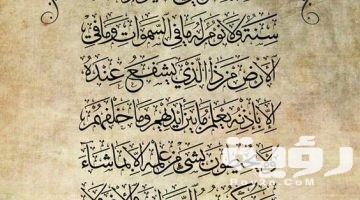 سنة ولا نوم له ما في السموات وما في
الأرض من ذا الذي يشفع عنده
إلا بإذنه يعلم ما بين أيديهم وما خلفهم
ولا يحيطون بشيء من علمه إلا بما شاء